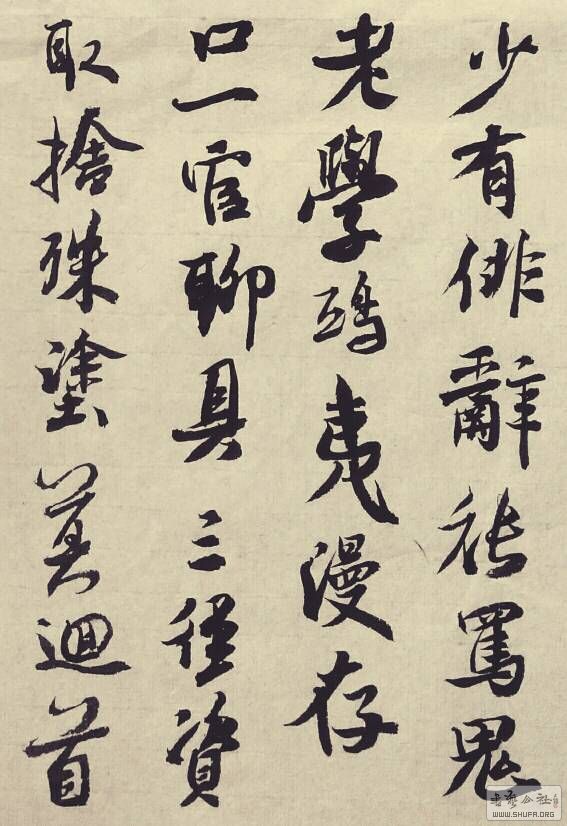 少有俳辭能罵鬼
老學鴟夷漫存
口一官聊具三徑資
取捨殊塗莫迴首
书艺公社
WWW.SHUFA.ORG